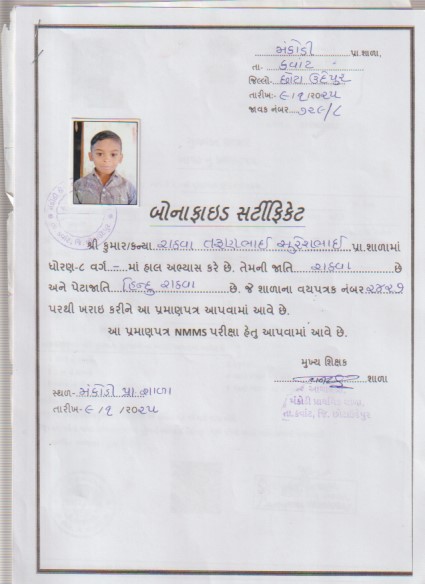 મંકોડી પ્રા.શાળા,
તા- કવાંટ
જિલ્લો- છોટા ઉદેપુર
તારીખ:- ૯/૧/૨૦૨૫
જાવક નંબર ૭૨૯/૮
બોનાફાઇડ સર્ટીફિકેટ
શ્રી કુમાર/કન્યા રાઠવા સુરેશભાઈ પ્રા.શાળામાં
ધોરણ-૮ વર્ગ - માં હાલ અભ્યાસ કરે છે. તેમની જાતિ રાઠવા છે
અને પેટાજાતિ હિન્દુ રાઠવા છે. જે શાળાના વયપત્રક નંબર
પરથી ખરાઇ કરીને આ પ્રમાણપત્ર આપવામાં આવે છે.
આ પ્રમાણપત્ર NMMS પરીક્ષા હેતુ આપવામાં આવે છે.
મુખ્ય શિક્ષક
શાળા
સ્થળ- મંકોડી પ્રા શાળા
તારીખ- ૯/૧/૨૦૨૫